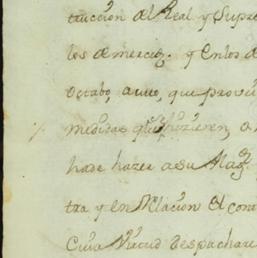 trucción del Real y Supre
los de mercez. y en los d
octabo, a uno, que proveu
medidas que hizieren o
ha de hazer a su Mag.
tra y en Relacion el con
Cuia Virtud despachare